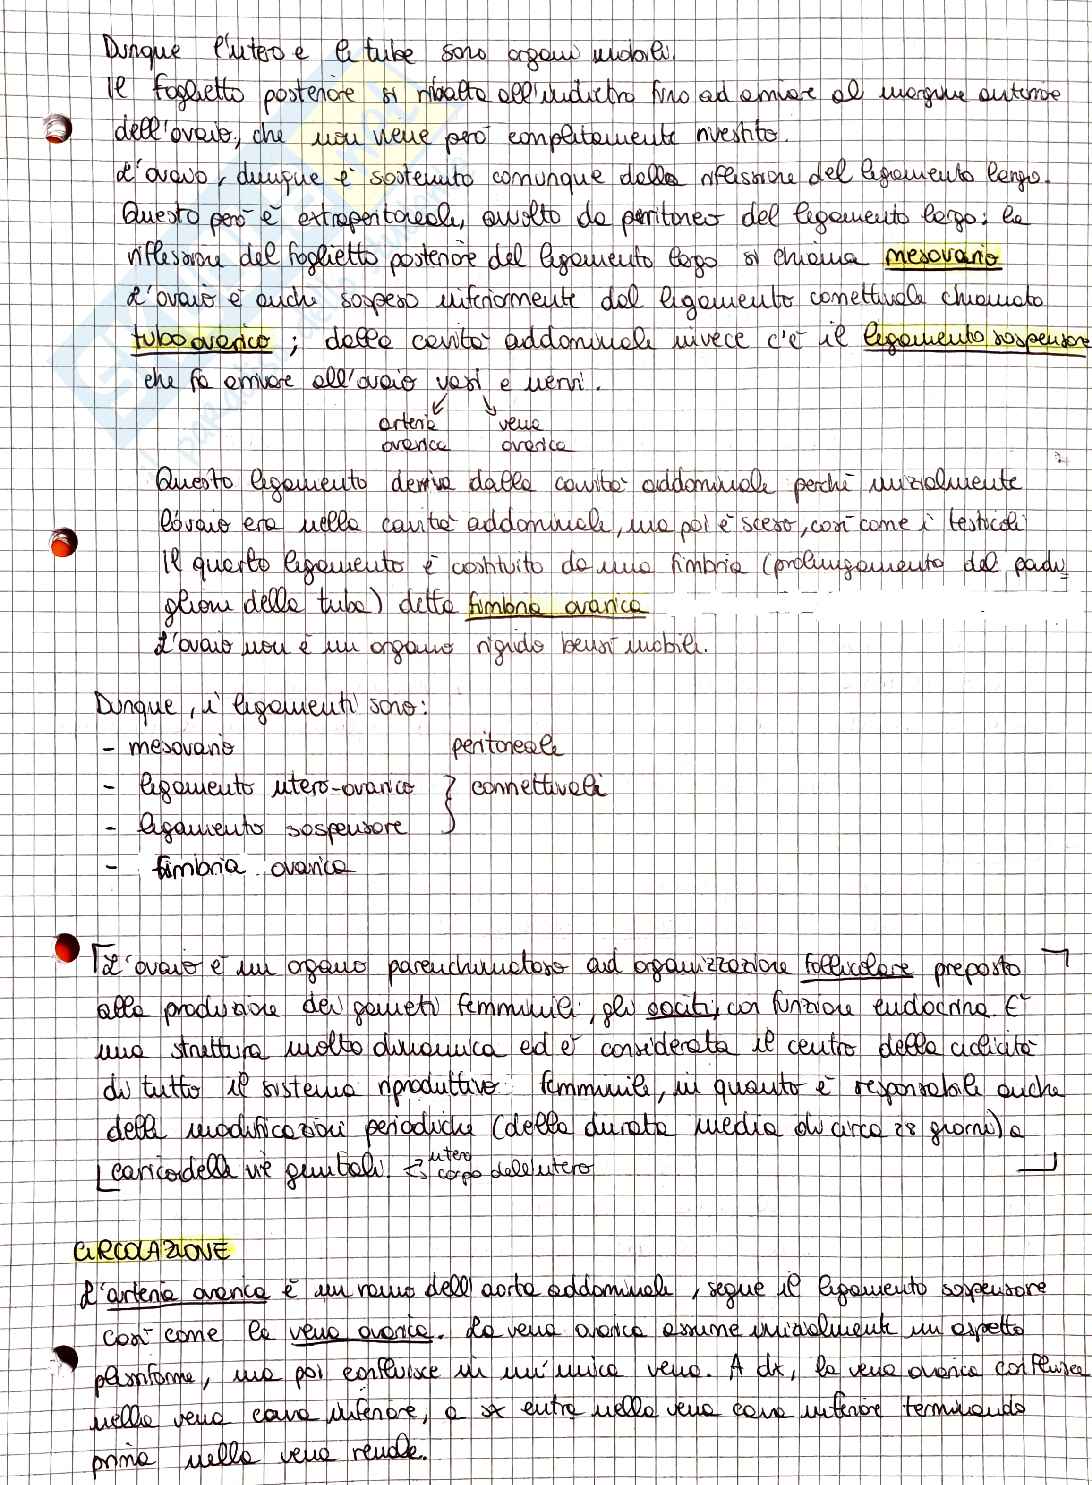 Dunque l'utero e le tube sono organi mobili.
Il foglietto posteriore si ribalta all'indietro fino ad arrivare al margine anteriore
dell'ovaio, che non viene però completamente rivestito.
L'ovaio, dunque è sostenuto comunque dalla riflessione del legamento largo.
Questo però è extraperitoneale, avvolto da peritoneo del legamento largo: la
riflessione del foglietto posteriore del legamento largo si chiama mesovario
L'ovaio è anche sospeso inferiormente dal legamento connettivale chiamato
tuboovarico; dalla cavità addominale invece c'è il legamento sospensore
che fa arrivare all'ovaio vasi e nervi.
arteria vena
ovarica ovarica
Questo legamento deriva dalla cavità addominale perché inizialmente
l'ovaio era nella cavità addominale, ma poi è sceso, così come i testicoli
Il quarto legamento è costituito da una fimbria (prolungamento del padi-
glione della tuba) detta fimbria ovarica
L'ovaio non è un organo rigido bensì mobile.
Dunque, i legamenti sono:
- mesovario peritoneale
- legamento utero-ovarico } connettivali
- legamento sospensore
- fimbria ovarica
L'ovaio è un organo parenchimatoso ad organizzazione follicolare preposto
alla produzione dei gameti femminili, gli oociti, con funzione endocrina. È
una struttura molto dinamica ed è considerata il centro della ciclicità
di tutto il sistema riproduttivo femminile, in quanto è responsabile anche
delle modificazioni periodiche (della durata media di circa 28 giorni) a
carico delle vie genitali. utero
corpo dell'utero
CIRCOLAZIONE
L'arteria ovarica è un ramo dell'aorta addominale, segue il legamento sospensore
così come la vena ovarica. La vena ovarica assume inizialmente un aspetto
plessiforme, ma poi confluisce in un'unica vena. A dx, la vena ovarica confluisce
nella vena cava inferiore, a sx entra nella vena cava inferiore terminando
prima nella vena renale.